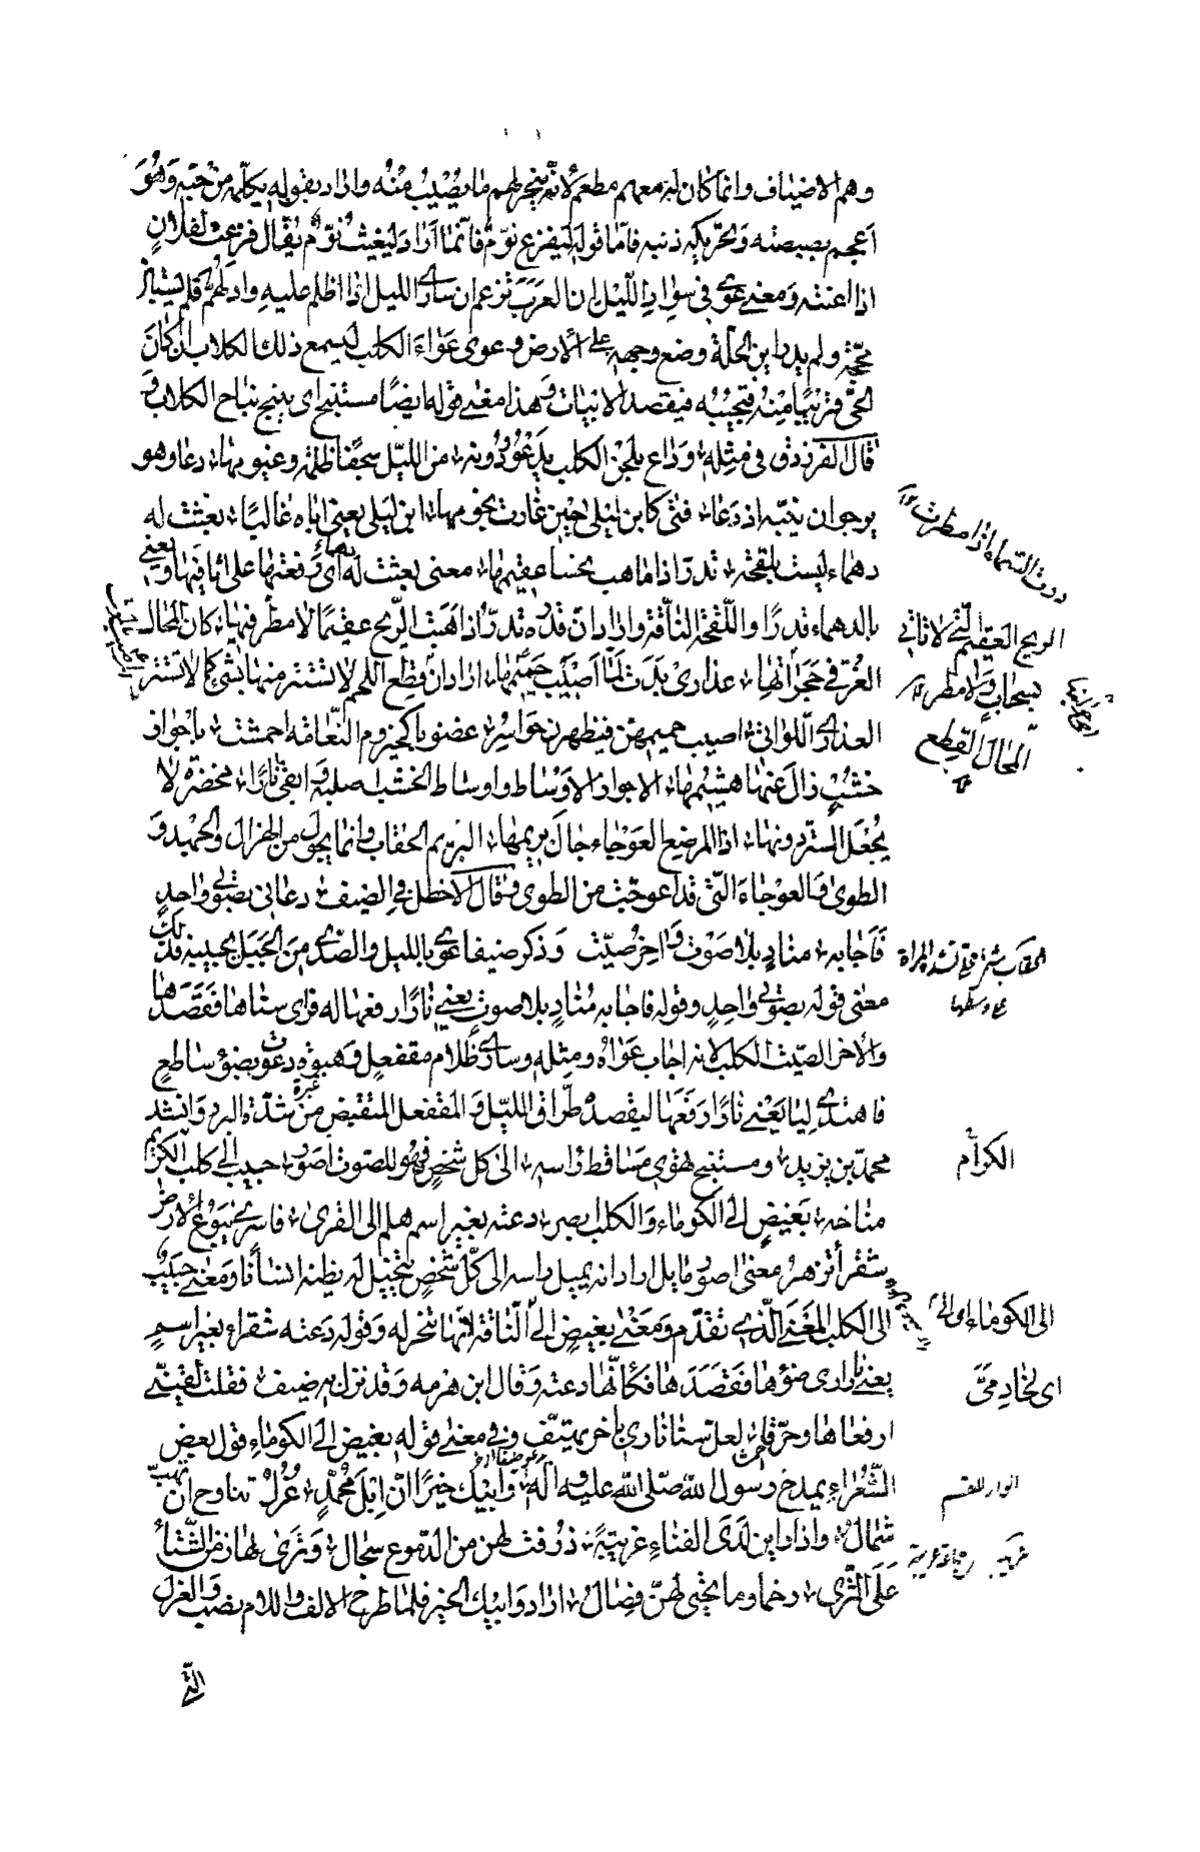 وهم الاضياف وانما كان له معهم مطعم لانه ينحر لهم ما يصيب منه واراد بقوله يكلمه من حبه وهو
اعجم بصبصته وتحريكه ذنبه فاما قوله ليفزع نوّم فانما اراد ليغيث نوّم يقال فزعت لفلان
اذا اغثته ومعنى عوى في سواد الليل ان العرب تزعم ان سارى الليل اذا اظلم عليه وادلهم فلم يستبن
محجّة ولم يدر اين الحلة وضع وجهه على الارض وعوى عواء الكلب ليسمع ذلك الكلاب ان كان
الحى قريبا منه فتجيبه فيقصد الابيات وهذا معنى قوله ايضا مستنبح اى ينبح نباح الكلاب و
قال الفرزدق في مثله وداع بلحن الكلب يدعو ودونه من الليل سجفا ظلمة وغيومها دعا وهو
يرجو ان ينبّه اذ دعا فتى كابن ليلى حين غارت نجومها ابن ليلى يعنى اباه غالبا بعثت له
دهماء ليست بلقحة تدرّ اذا ما هب نحسا عقيمها معنى بعثت له اى رفعتها على اثافيها ويعنى
بالدهماء قدرا واللقحة الناقة واراد ان قدره تدرّ اذا هبت الريح عقيما لا مطر فيها كان المحال
الغرّ في حجراتها عذارى بدت لما اصيب حميمها اراد ان قطع اللحم لا تستتر منها بشئ كما لا تستتر
العذارى اللواتى اصيب حميمهن فيظهرن حواسر غضوبا كحيزوم النعامة احمشت باجواز
خشب زال عنها هشيمها الاجواز الاوساط واوساط الخشب اصلبه وابقى نارا محضرة لا
يجعل الستر دونها اذا المرضع العوجاء جال بريمها البريم الحقاب وانما يجول من الهزال والجهد و
الطوى والعوجاء التى قد اعوجت من الطوى وقال الاخطل في الضيف دعانى بصوت واحد
فاجابه مناد بلا صوت واخر صيّت وذكر ضيفا عوى بالليل والصدى من الجبل يجيبه فذلك
معنى قوله بصوت واحد وقوله فاجابه مناد بلا صوت يعنى نارا رفعها له فراى سناها فقصدها
والاخر الصيّت الكلب لانه اجاب عواه ومثله وسارى ظلام مقفعل وهبوة دعوت بضوء ساطع
فاهتدى ليا يعنى نارا رفعها ليقصده طراق الليل والمقفعل المتقبض من شدة البرد وانشد
محمد بن يزيد ومستنبح تهوى مساقط راسه الى كل شخص فهو للصوت اصور حبيب الى كلب الكريم
مناخه بغيض الى الكوماء والكلب ابصر دعته بغير اسم هلم الى القرى فاسرى يبوع الارض
شقراء تزهر معنى اصور مايل اراد انه يميل راسه الى كل شخص يتخيل له يظنه انسانا ومعنى حبيب
الى الكلب المعنى الذى تقدم ومعنى بغيض الى الناقة لانها تنحر له وقوله دعته شقراء بغير اسم
يعنى نارا راى ضوءها فقصدها فكانها دعته وقال ابن هرمه وقد نزل به ضيف فقلت لقينىّ
ارفعاها وحرّقا لعل سنا نارى باخر يهتف وفى معنى قوله بغيض الى الكوماء قول بعض
الشعراء يمدح رسول الله صلى الله عليه واله وابيك خيرا ان ابل محمد عزل تناوح ان تهب
شمال واذا راين لدى الفناء غريبة ذرفت لهن من الدموع سجال وترى لها زمن الشتاء
على الثرى رخما وما يحيى لهن فصال اراد وابيك الخير فلما طرح الالف واللام نصب والعزل
درت السماء اذا مطرت
الريح العقيم التى لا تاتى
بسحاب ولا مطر
المحال القطع
الحقاب شئ تشد المراة
على وسطها
الكرام
الى الكوماء اى الى
اى لخادمىّ
الواو للقسم
التى